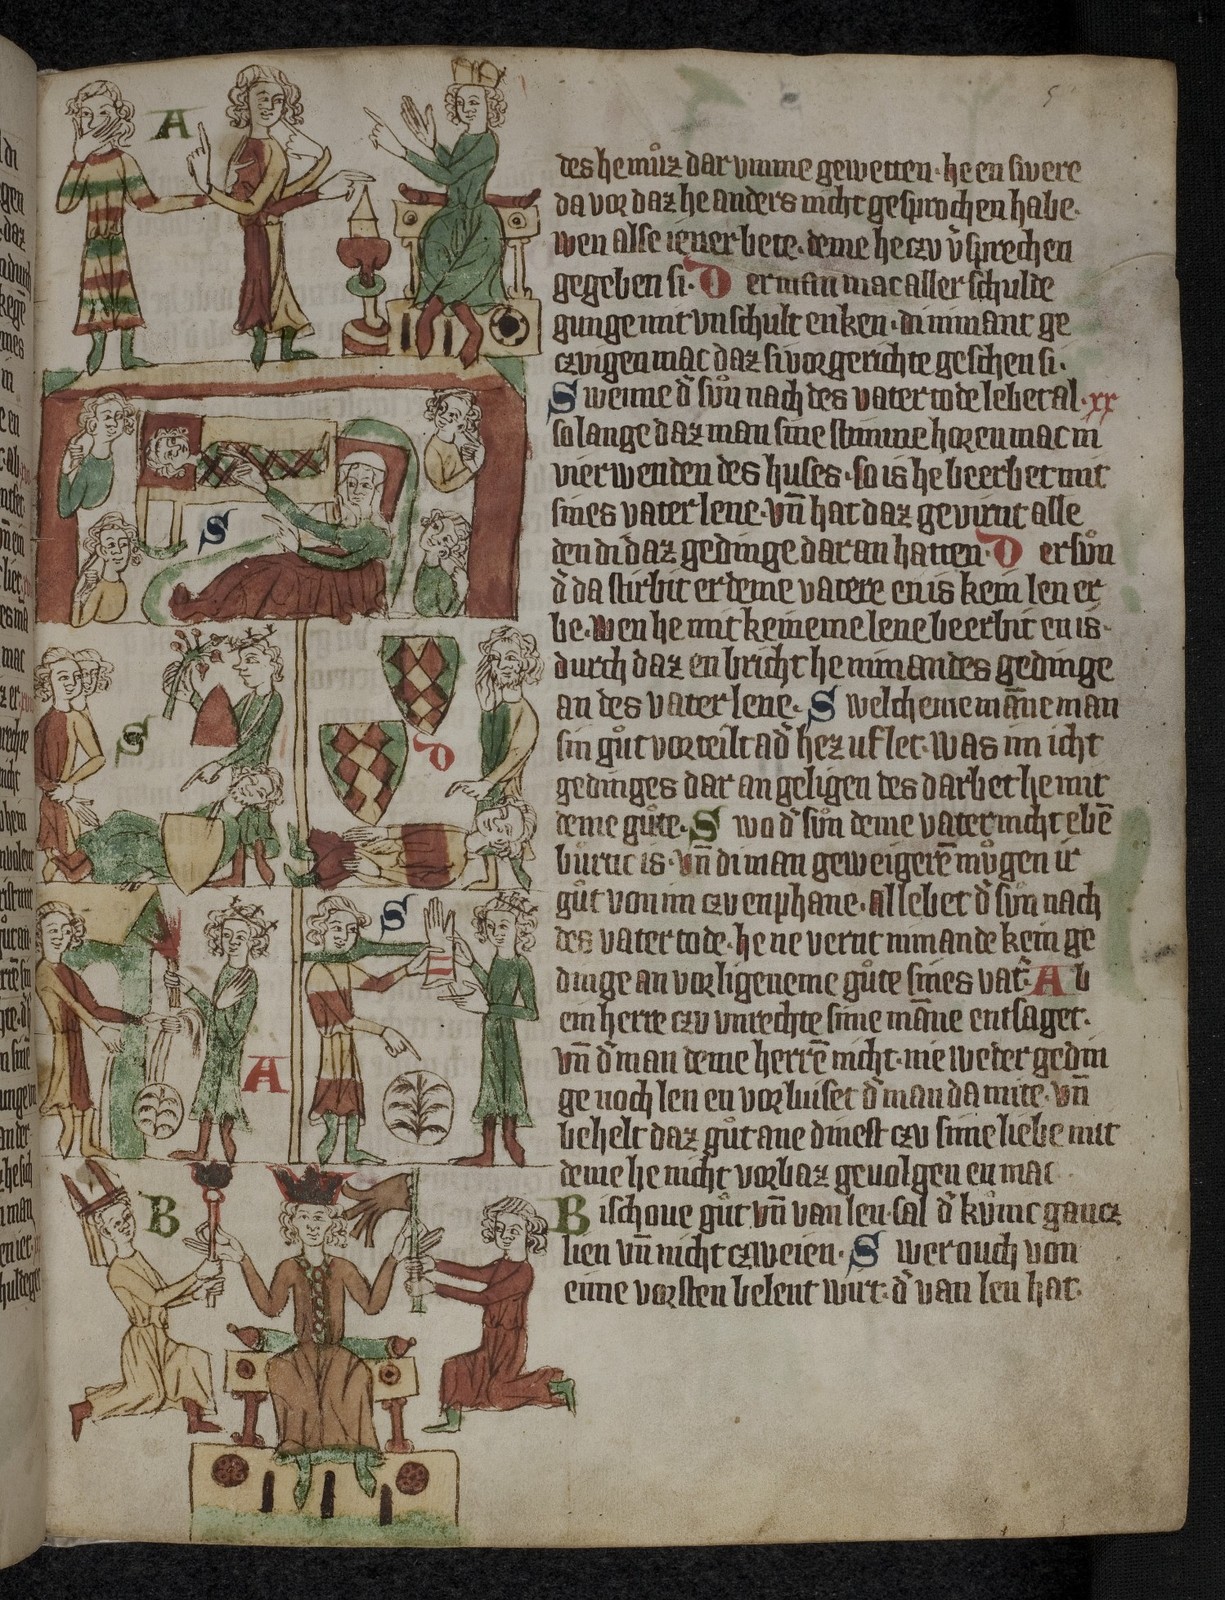 des he můz dar vmme gewetten · he en swere
da vor daz he anders nicht gesprochen habe ·
wen alse iener bete · deme he czu v̄sprechen
gegeben si · D er man mac aller schulde
gunge mit vnschult enken · di nimant ge
czugen mac daz si vor gerichte geschen si ·
S wenne d̄ sůn nach des vater tode lebet al · xx
so lange daz man sine stimme horen mac in
vier wenden des huses · so is he beerbet mit
sines vater lene · vn̄ hat daz gevirnt alle
den di daz gedinge dar an hatten · D er sůn
d̄ da stirbit er deme vatere en is kein len er
be · wen he mit keineme lene beerbit en is ·
durch daz en bricht he nimandes gedinge
an des vater lene · S welcheme māne man
sin gůt vorteilt ad̄ hez uf let · was im icht
gedinges dar an geligen des darbet he mit
deme gůte · S wo d̄ sůn deme vater nicht ebē
burtic is · vn̄ di man geweigerē mogen ir
gůt von im czu enphane · al lebet d̄ sůn nach
des vater tode · he ne verut nimande kein ge
dinge an vorligeneme gůte sines vat̄ · A b
ein herre czu vnrechte sime māne entsaget ·
vn̄ d̄ man deme herrē nicht · nie weder gedin
ge noch len en vorluiset d̄ man da mite · vn̄
behelt daz gůt ane dinest czu sime liebe mit
deme he nicht vorbaz gevolgen en mac
B ischoue gůt vn̄ van len · sal d̄ kůnic gancz
lien vn̄ nicht czweien · S wer ouch von
eime vorsten belent wirt · d̄ van len hat ·
A
S
S
D
S
A
B